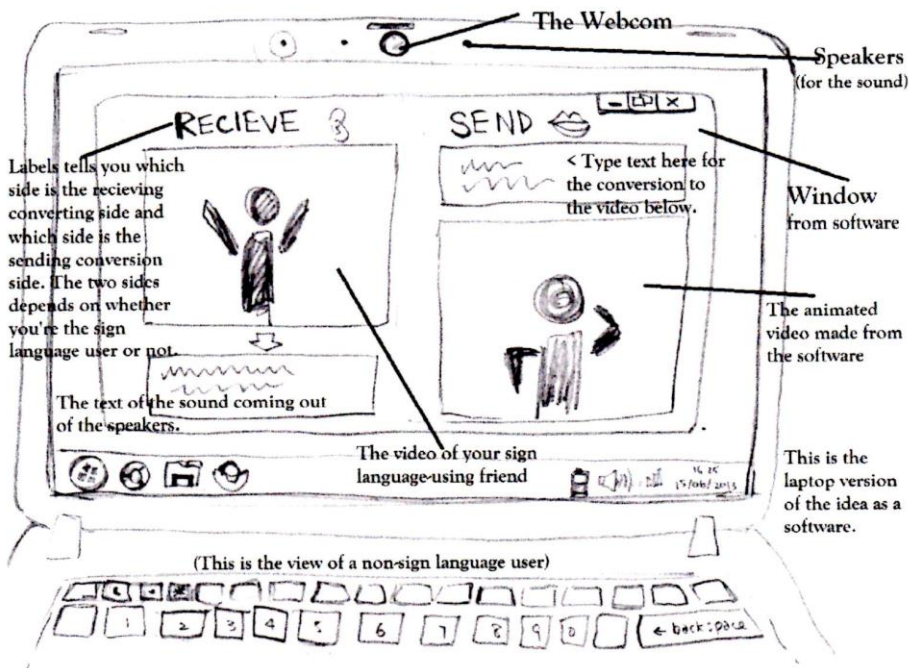 The Webcom
Speakers
(for the sound)
RECIEVE
SEND
Labels tells you which
side is the recieving
converting side and
which side is the
sending conversion
side. The two sides
depends on whether
you're the sign
language user or not.
< Type text here for
the conversion to
the video below.
Window
from software
The animated
video made from
the software
The text of the sound coming out
of the speakers.
The video of your sign
language-using friend
16:25
15/06/2013
This is the
laptop version
of the idea as a
software.
(This is the view of a non-sign language user)
1 2 3 4 5 6 7 8 9 0 ← backspace